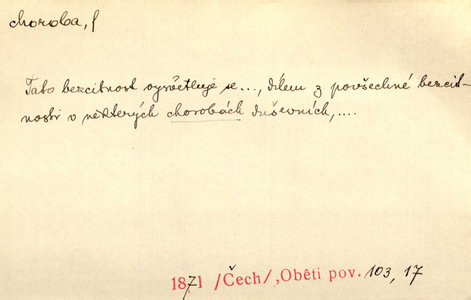 choroba, f
Tato bezcitnost vysvětluje se..., dílem z povšechné bezcit-
nosti v některých chorobách duševních,....
1871 /Čech/,Oběti pov. 103, 17